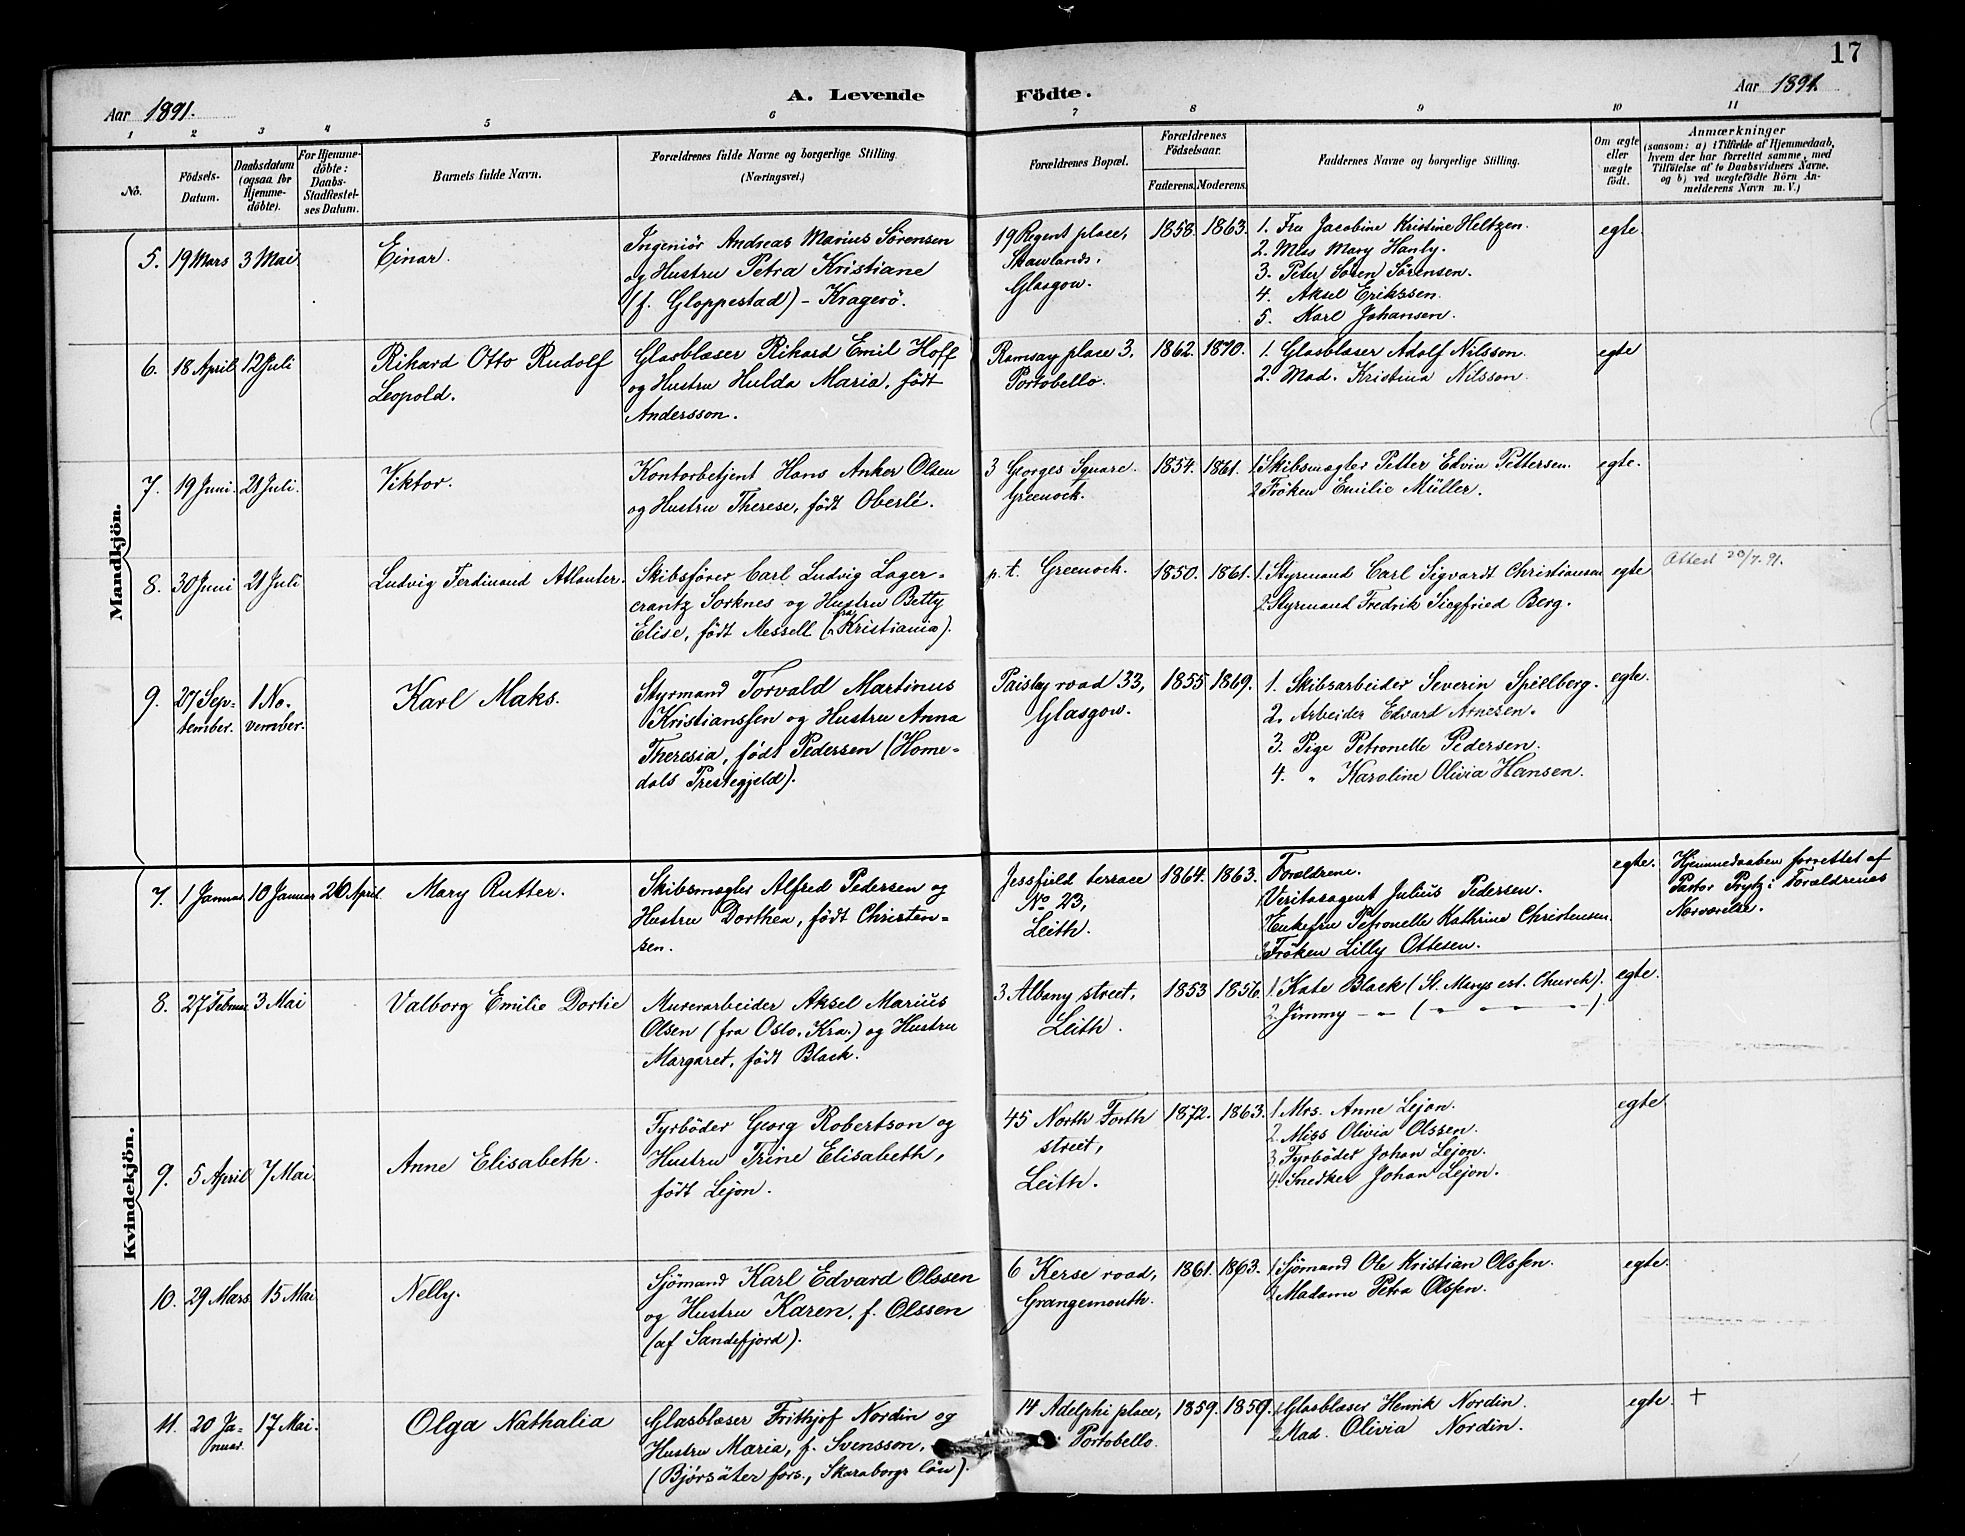 17
Aar 1891.
A. Levende Födte.
Aar 1891.
1 2 3 4 5 6 7 8 9 10 11
No.
Födsels-
Datum.
Daabsdatum
(ogsaa for
Hjemme-
döbte).
For Hjemme-
döbte:
Daabs-
Stadfæstel-
ses Datum.
Barnets fulde Navn.
Forældrenes fulde Navne og borgerlige Stilling.
(Næringsvei.)
Forældrenes Bopæl.
Forældrenes
Födselsaar.
Faderens. Moderens.
Faddernes Navne og borgerlige Stilling.
Om ægte
eller
uægte
født.
Anmærkninger
(saasom: a) i Tilfælde af Hjemmedaab,
hvem der har forrettet samme, med
Tilföielse af to Daabsvidners Navne.
og b) ved uægtefödte Börn An-
melderens Navn m. V.)
Mandkjön.
5. 19 Mars 3 Mai
Einar.
Ingeniör Andreas Marius Sörensen
og Hustru Petra Kristiane
(f. Gloppestad) - Kragerö.
19 Regent place,
Shawlands,
Glasgow.
1858. 1863.
1. Fru Jacobine Kristine Heltzen.
2. Miss Mary Hanly.
3. Peter Sören Sörensen.
4. Aksel Erikssen.
5. Karl Johansen.
egte.
6. 18 April 12 Juli
Rikard Otto Rudolf
Leopold.
Glasblæser Rikard Emil Hoff
og Hustru Hulda Maria, födt
Andersson.
Ramsay place 3,
Portobello.
1862. 1870.
1. Glasblæser Adolf Nilsson.
2. Mad. Kristina Nilsson.
egte
7. 19 Juni. 21 Juli.
Viktor.
Kontorbetjent Hans Anker Olsen
og Hustru Therese, födt Oberlé.
3 Georges Square.
Greenock.
1854. 1861.
1. Skibsmægler Petter Edvin Pettersen.
2. Fröken Emilie Müller.
egte.
8. 30 Juni 21 Juli
Ludvig Ferdinand Atlanter.
Skibsförer Carl Ludvig Lager-
crantz Sorknes og Hustru Betty
Elise, födt Messell (fra Kristiania).
p. t. Greenock.
1850. 1861.
1. Styrmand Carl Sigvardt Christiansen
2. Styrmand Fredrik Siegfried Berg.
egte
Attest 20/7. 91.
9. 27 Sep-
tember.
1 No-
vember.
Karl Maks.
Styrmand Torvald Martinus
Kristianssen og Hustru Anna
Theresia, födt Pedersen (Home-
dals Prestegjeld).
Paisley road 33,
Glasgow.
1855 1869.
1. Skibsarbeider Severin Spellberg.
2. Arbeider Edvard Arnesen.
3. Pige Petronelle Pedersen.
4. " Karoline Olivia Hansen.
egte.
Kvindekjön.
7. 1 Januar 10 Januar 26 April
Mary Rutter.
Skibsmægler Alfred Pedersen og
Hustru Dorthea, födt Christen-
sen.
Jessfield terrace
No 23,
Leith.
1864. 1863.
Forældrene.
Veritasagent Julius Pedersen.
Enkefru Petronelle Kathrine Christensen.
Fröken Lilly Ottesen.
egte.
Hjemmedaaben forrettet af
Pastor Prytz i Forældrenes
Nærværelse.
8. 27 Februar 3 Mai
Valborg Emilie Dortie
Murerarbeider Aksel Marius
Olsen (fra Oslo. Kra.) og Hustru
Margaret, födt Black.
3 Albany street,
Leith.
1853 1856.
1. Kate Black (St. Marys est. Church).
2. Jimmy - " - ( " - " - " - )
egte.
9. 5 April 7 Mai.
Anne Elisabeth.
Fyrböder Georg Robertson og
Hustru Trine Elisabeth,
födt Lejon.
45 North Forth
street,
Leith.
1872. 1863.
1. Mrs. Anne Lejon.
2. Miss Olivia Olssen.
3. Fyrböder Johan Lejon.
4. Snedker Johan Lejon.
egte
10. 29 Mars 15 Mai
Nelly.
Sjömand Karl Edvard Olssen
og Hustru Karen, f. Olssen
(af Sandefjord).
6 Kerse road,
Grangemouth.
1861. 1863.
1. Sjömand Ole Kristian Olssen.
2. Madame Petra Olssen.
egte.
11. 20 Ja-
nuar.
17 Mai.
Olga Nathalia
Glasblæser Frithjof Nordin og
Hustru Maria, f. Svensson,
(Björsäter fors., Skaraborgs län).
14 Adelphi place,
Portobello.
1859. 1859.
1. Glasblæser Henrik Nordin.
2. Mad. Olivia Nordin.
egte.
+